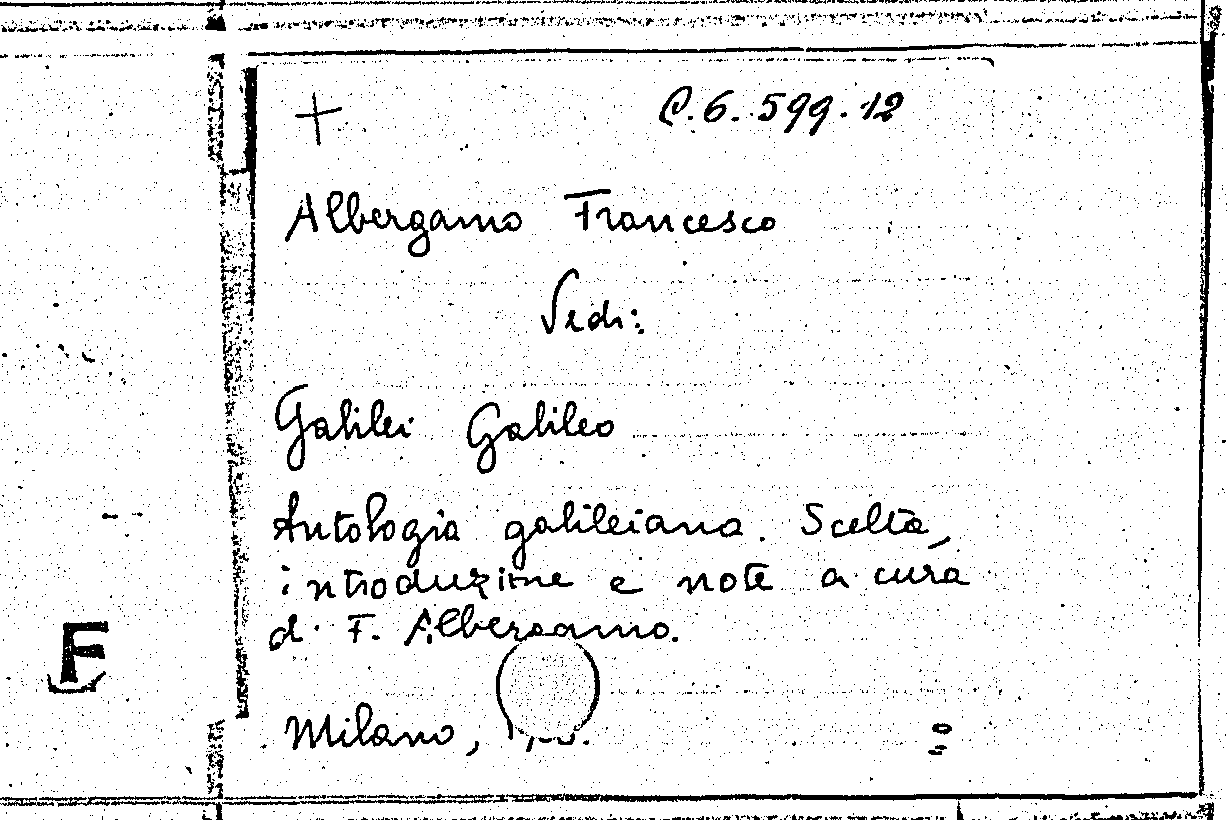 + C.6.599.12
Albergamo Francesco
Vedi:
Galilei Galileo
Antologia galileiana. Scelta,
introduzione e note a cura
di F. Albergamo.
Milano,
F